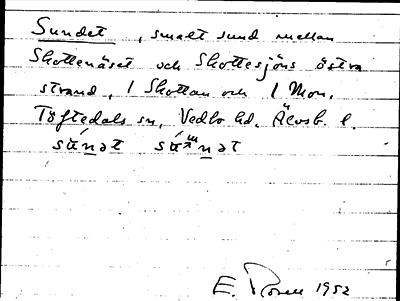 Sundet, smalt sund mellan
Skottenäset och Skottesjöns östra
strand, 1 Skottan och 1 Mon.
Töftedals sn, Vedbo hd. Älvsb. l.
E. Rosell 1952